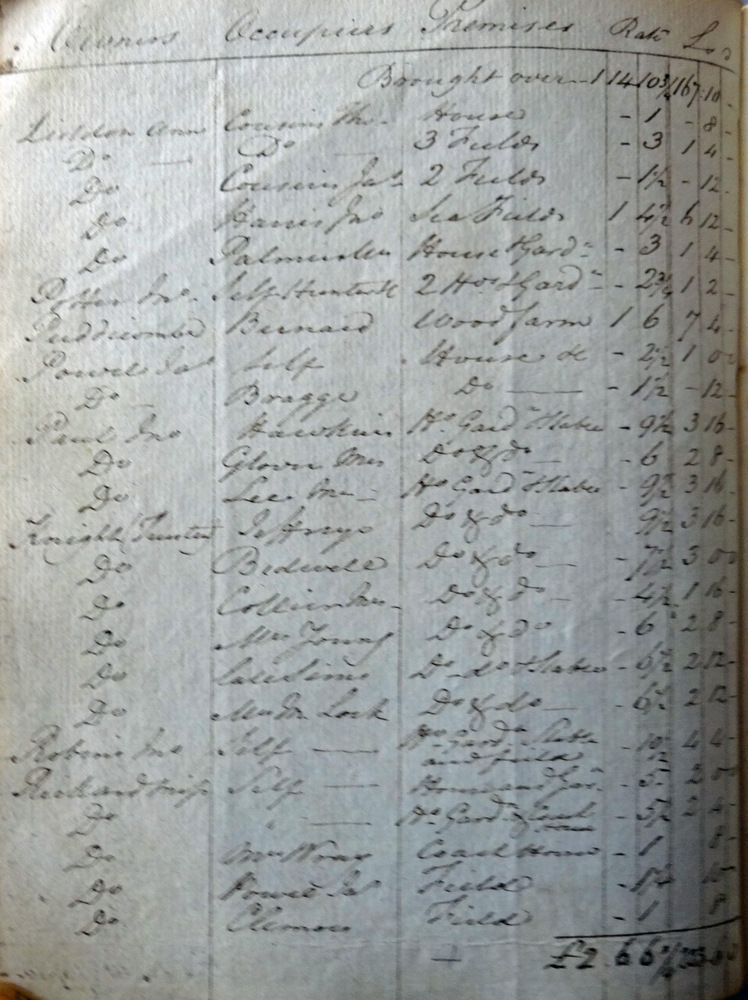 Owners Occupiers Premises Rate £ s d
Brought over - 1 14 10¾ 167 10 -
Ann Cousins Tho. House - 1 - 8 -
Do — Do — 3 Fields - 3 1 4 -
Do Cousins Jas 2 Fields - 1½ - 12 -
Do Harris Jno Sea Fields 1 4½ 6 12 -
Do House & Gard - 3 1 4 -
Potter Jno. Self 2 Hos & Gard - 2¾ 1 2 -
Puddicombe Bernard Wood farm 1 6 7 4 -
Powel Jas Self House &c - 2½ 1 0 0
Do Bragge Do — - 1½ - 12 -
Paul Jno Hawkins Ho Gard Stable - 9½ 3 16 -
Do Glover Mrs Do & do — - 6 2 8 -
Do Lee Mr — Ho Gard & Stable - 9½ 3 16 -
Knight Jeffreys Do & do — 9½ 3 16 -
Do Bidwell Do & do — - 7½ 3 0 0
Do Collier Mrs — Do & do — - 4½ 1 16 -
Do Mrs Young Do & Do - 6 2 8 -
Do Sims Do do & Stable - 6½ 2 12 -
Do Lock Do & do — - 6½ 2 12 -
Robins Jno Self — Ho Gard Stable
and field - 10½ 4 4 -
Miss Self — House and Gar. - 5 2 0 0
Do " — Ho Gard & Coach
House - 5½ 2 4 -
Do Mrs Wray Coach House - 1 8 -
Do Powel Jas Field 15 -
Do Field - 1 8
£2 6 6¾